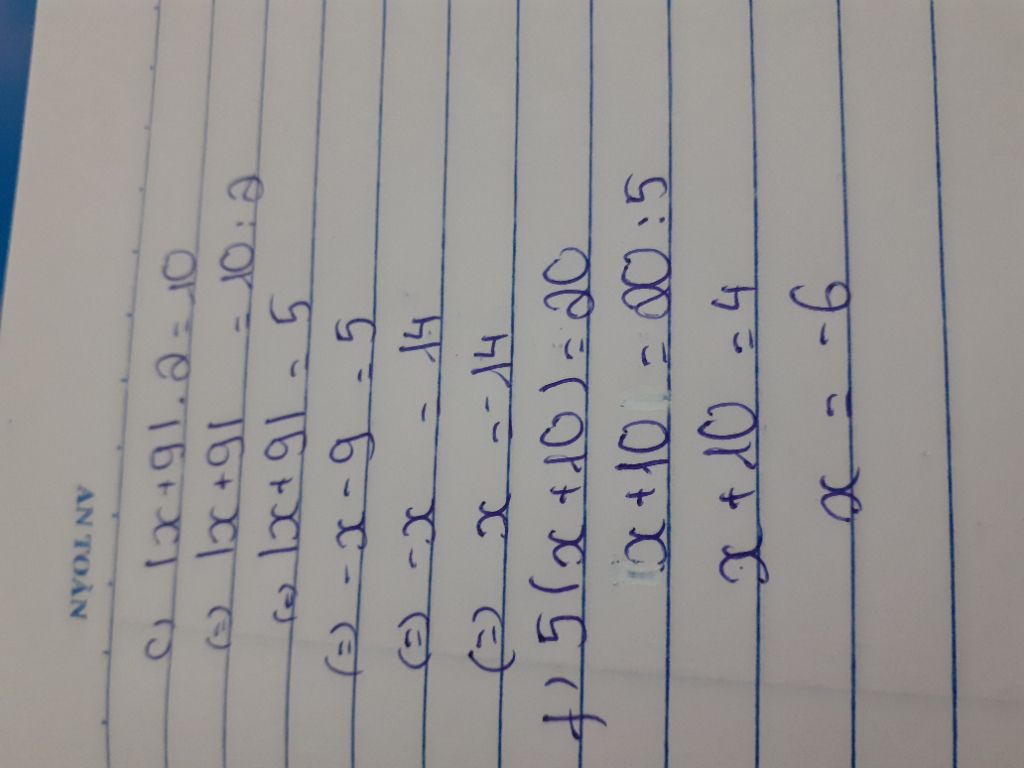 AN TOÀN
c) |x+9|.2=10
(=) |x+9| = 10:2
(=) |x+9| = 5
(=) -x-9 = 5
(=) -x = 14
(=) x = -14
f) 5(x+10)=20
x+10 = 20:5
x+10 = 4
x = -6